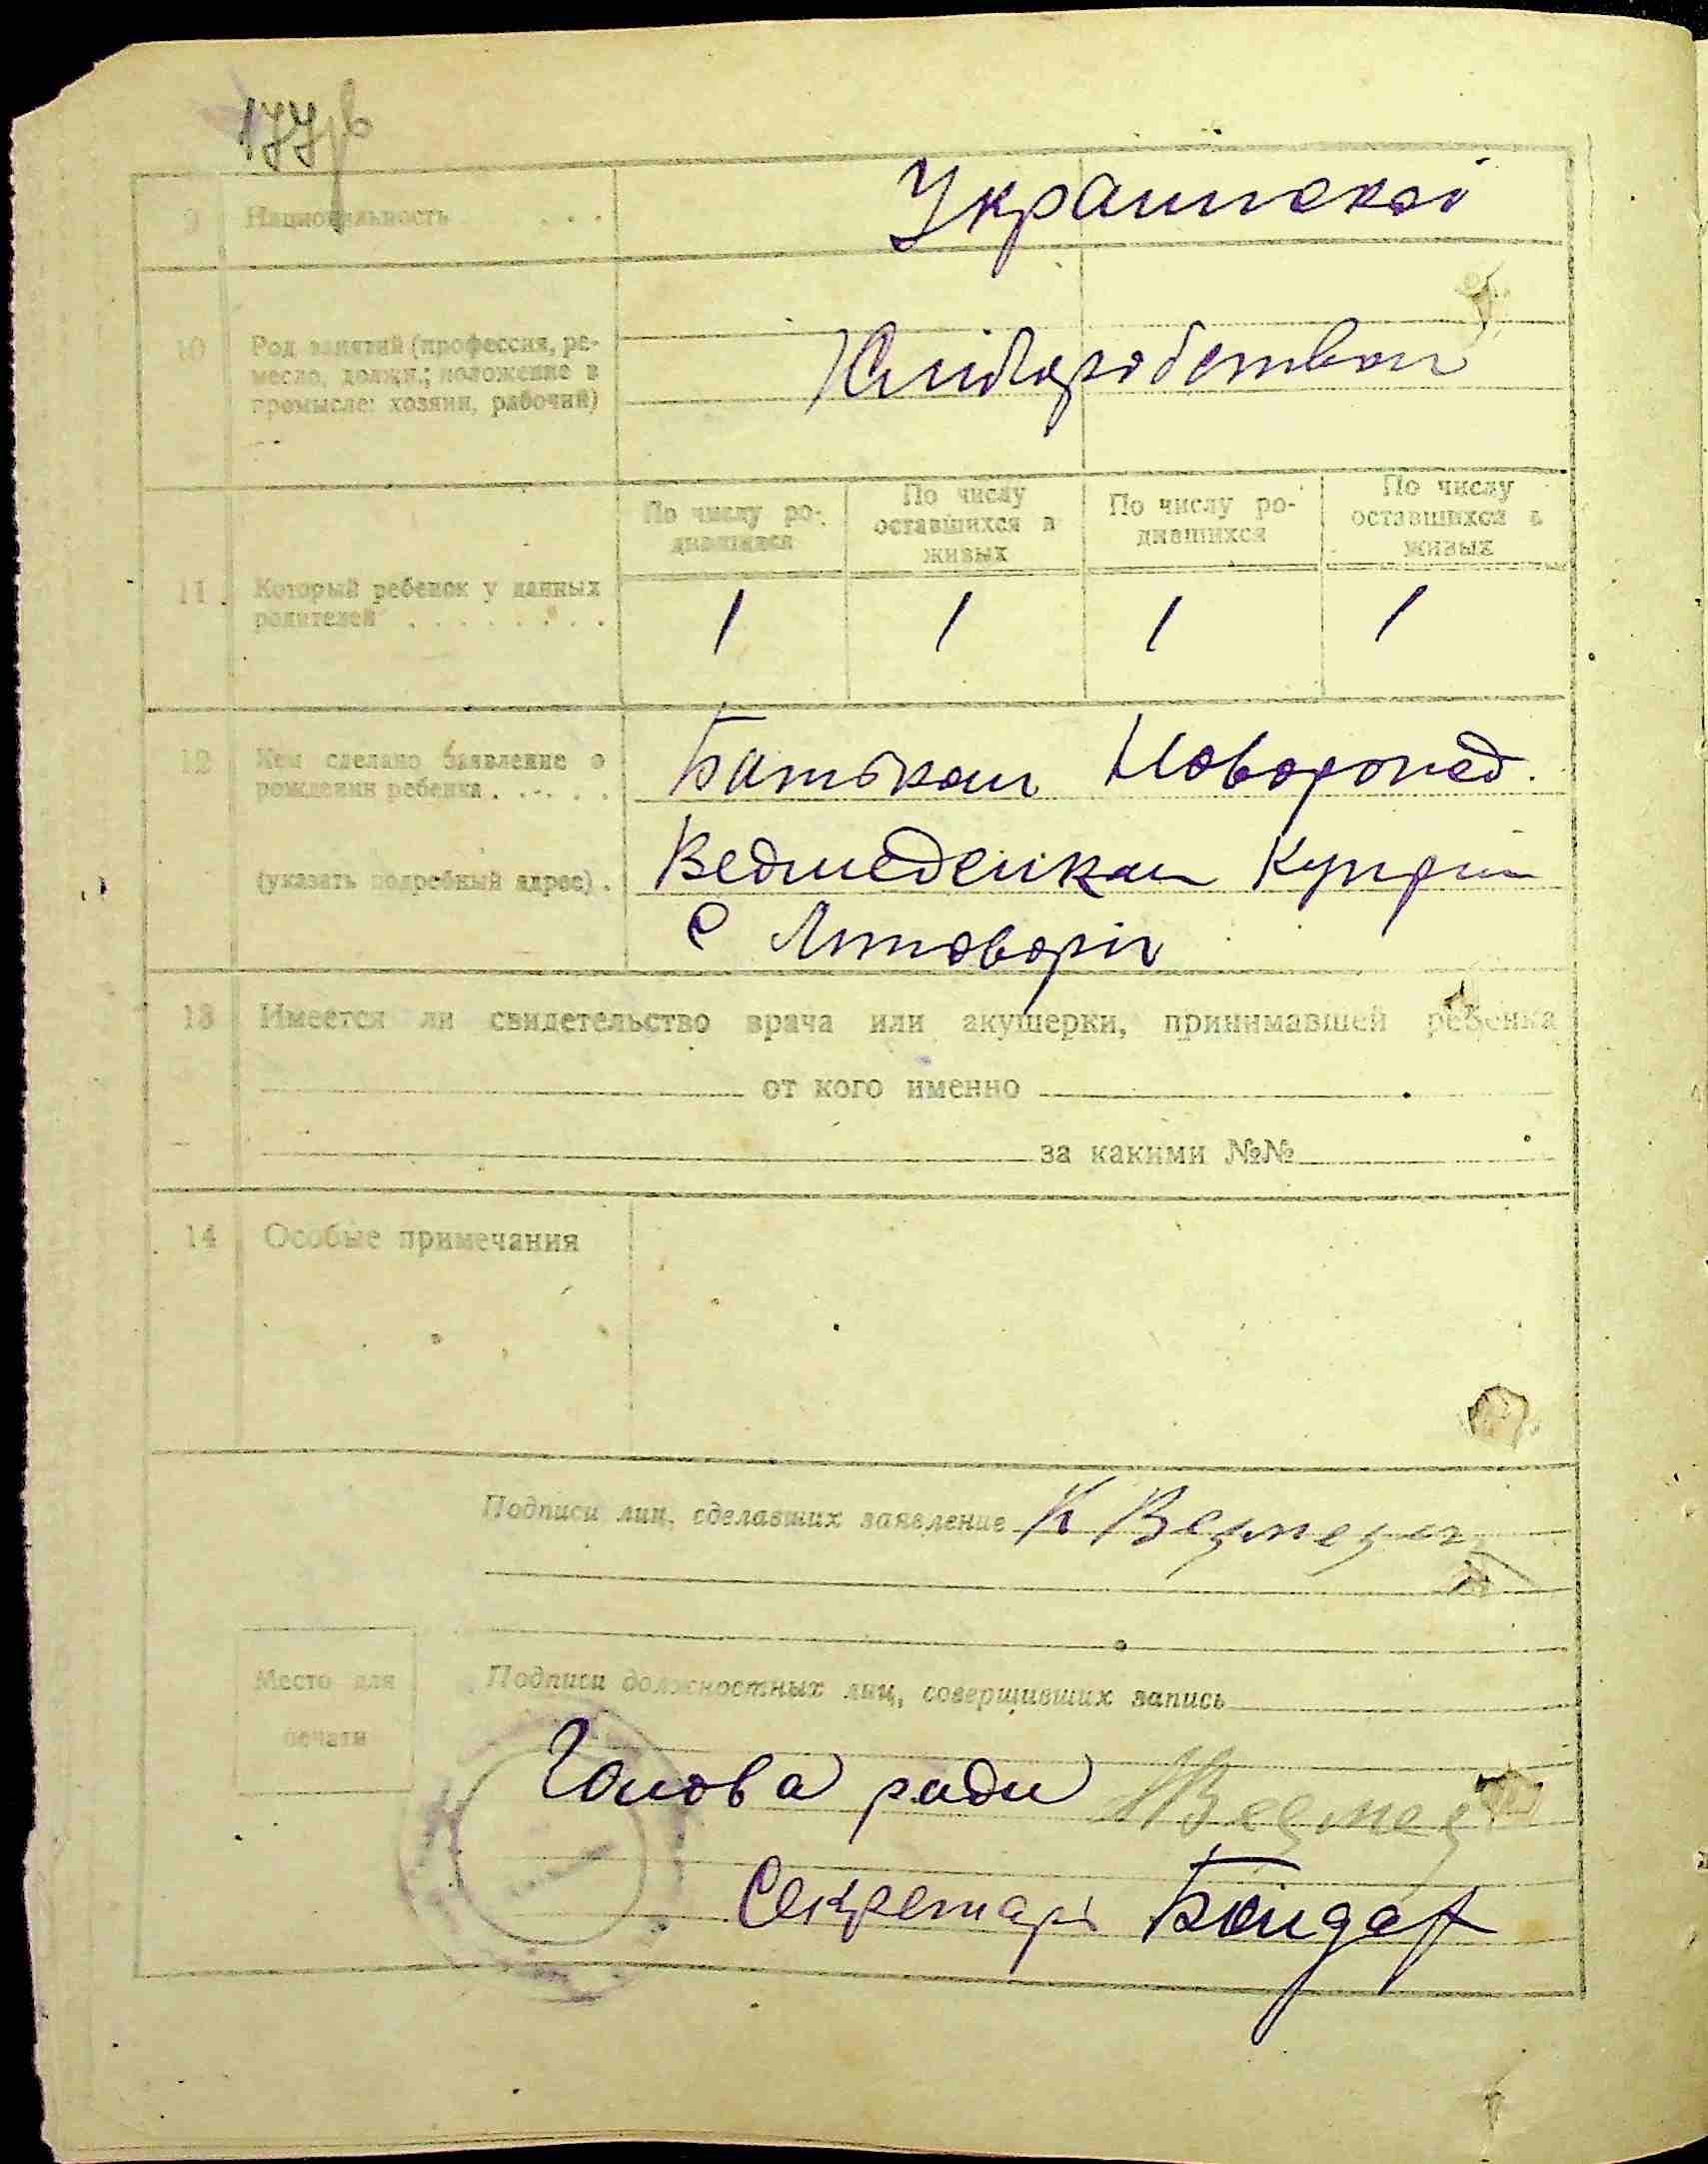 177 зв
9 Национальность . . . Украинскої
10 Род занятий (профессия, ре-
месло, должн.; положение в
промысле: хозяин, рабочий)
Хліборобством
По числу ро-
дившихся
По числу
оставшихся в
живых
По числу ро-
дившихся
По числу
оставшихся в
живых
11 Который ребенок у данных
родителей . . . . . . . .
1 1 1 1
12 Кем сделано заявление о
рождении ребенка . . . . .
(указать подробный адрес) .
Батьком Новорожд.
Ведмеденком Купріи
с
13 Имеется ли свидетельство врача или акушерки, принимавшей ребенка
от кого именно
за какими №№
14 Особые примечания
Подписи лиц, сделавших заявление К
Место для
печати
Подписи должностных лиц, совершивших запись
Голова ради
Секретарь Бондар